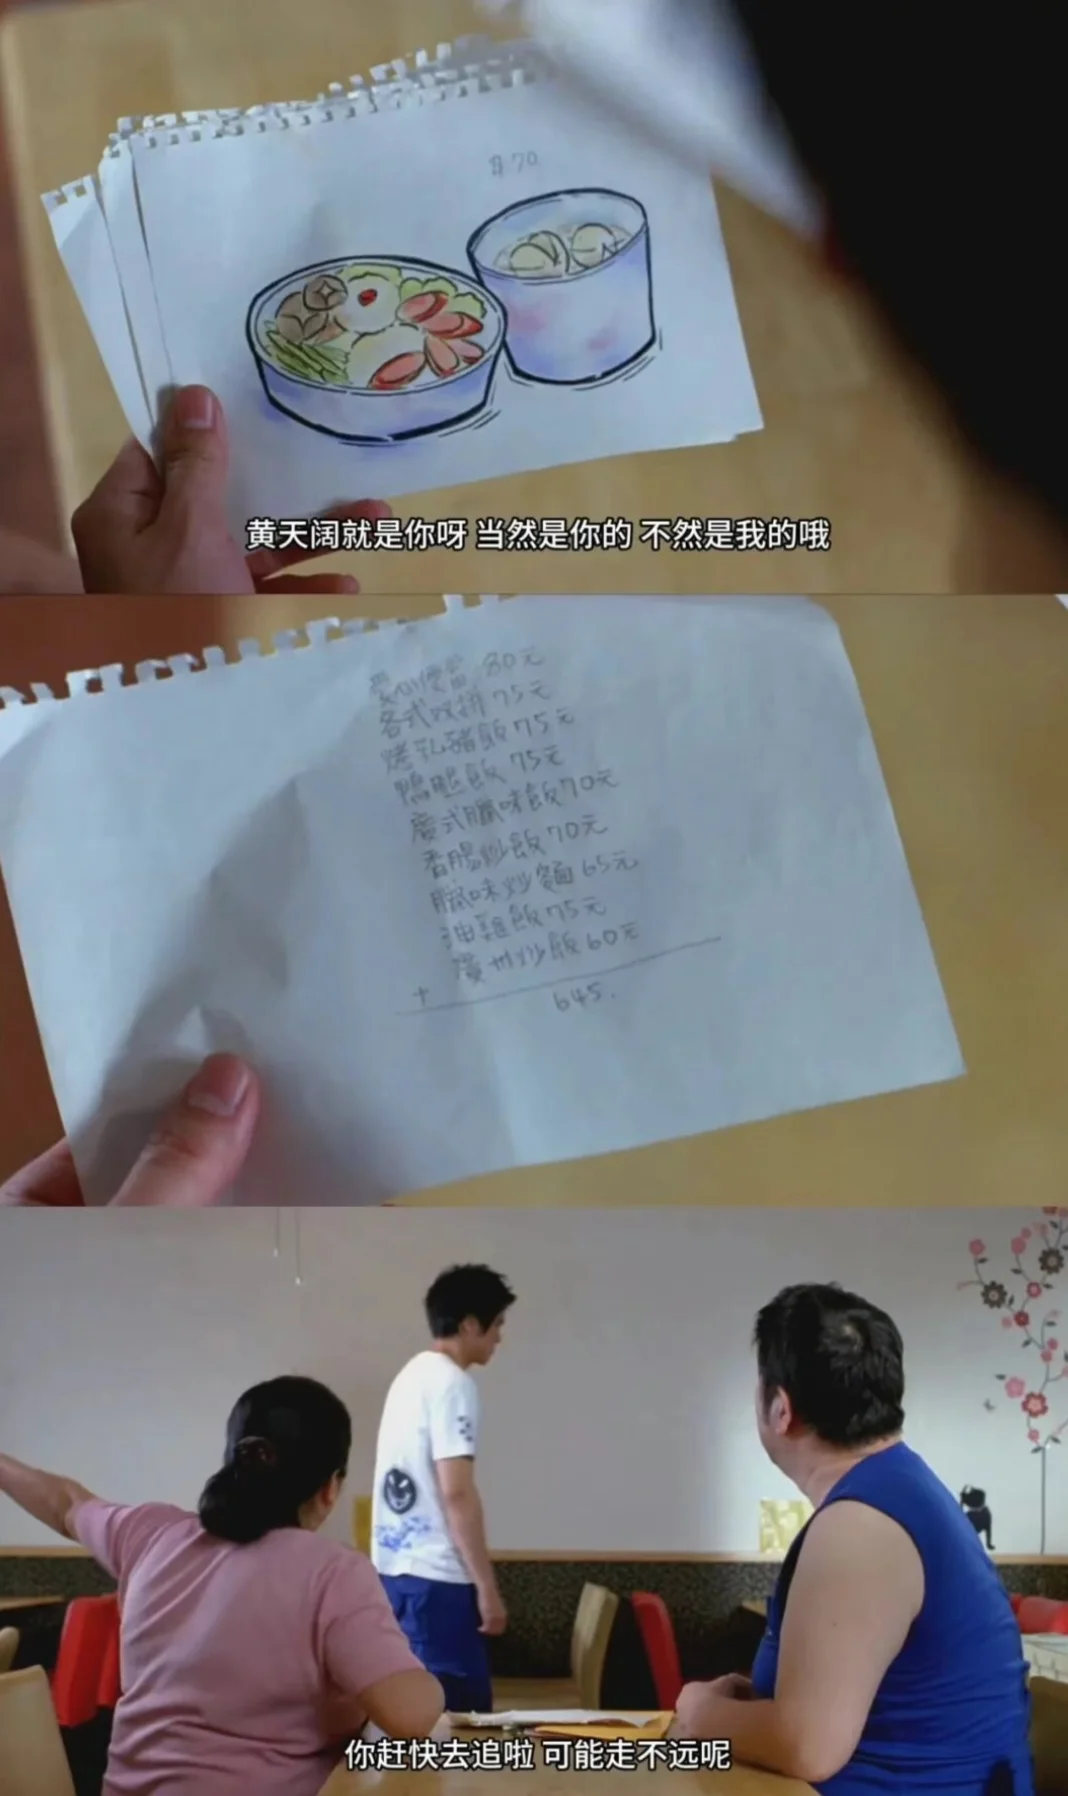 $70
黄天阔就是你呀 当然是你的 不然是我的哦
愛心便當 80元
各式双拼 75元
烤乳豬飯 75元
鴨腿飯 75元
廣式臘味飯 70元
香腸炒飯 70元
臘味炒麵 65元
油雞飯 75元
廣州炒飯 60元
+
645.
你赶快去追啦 可能走不远呢